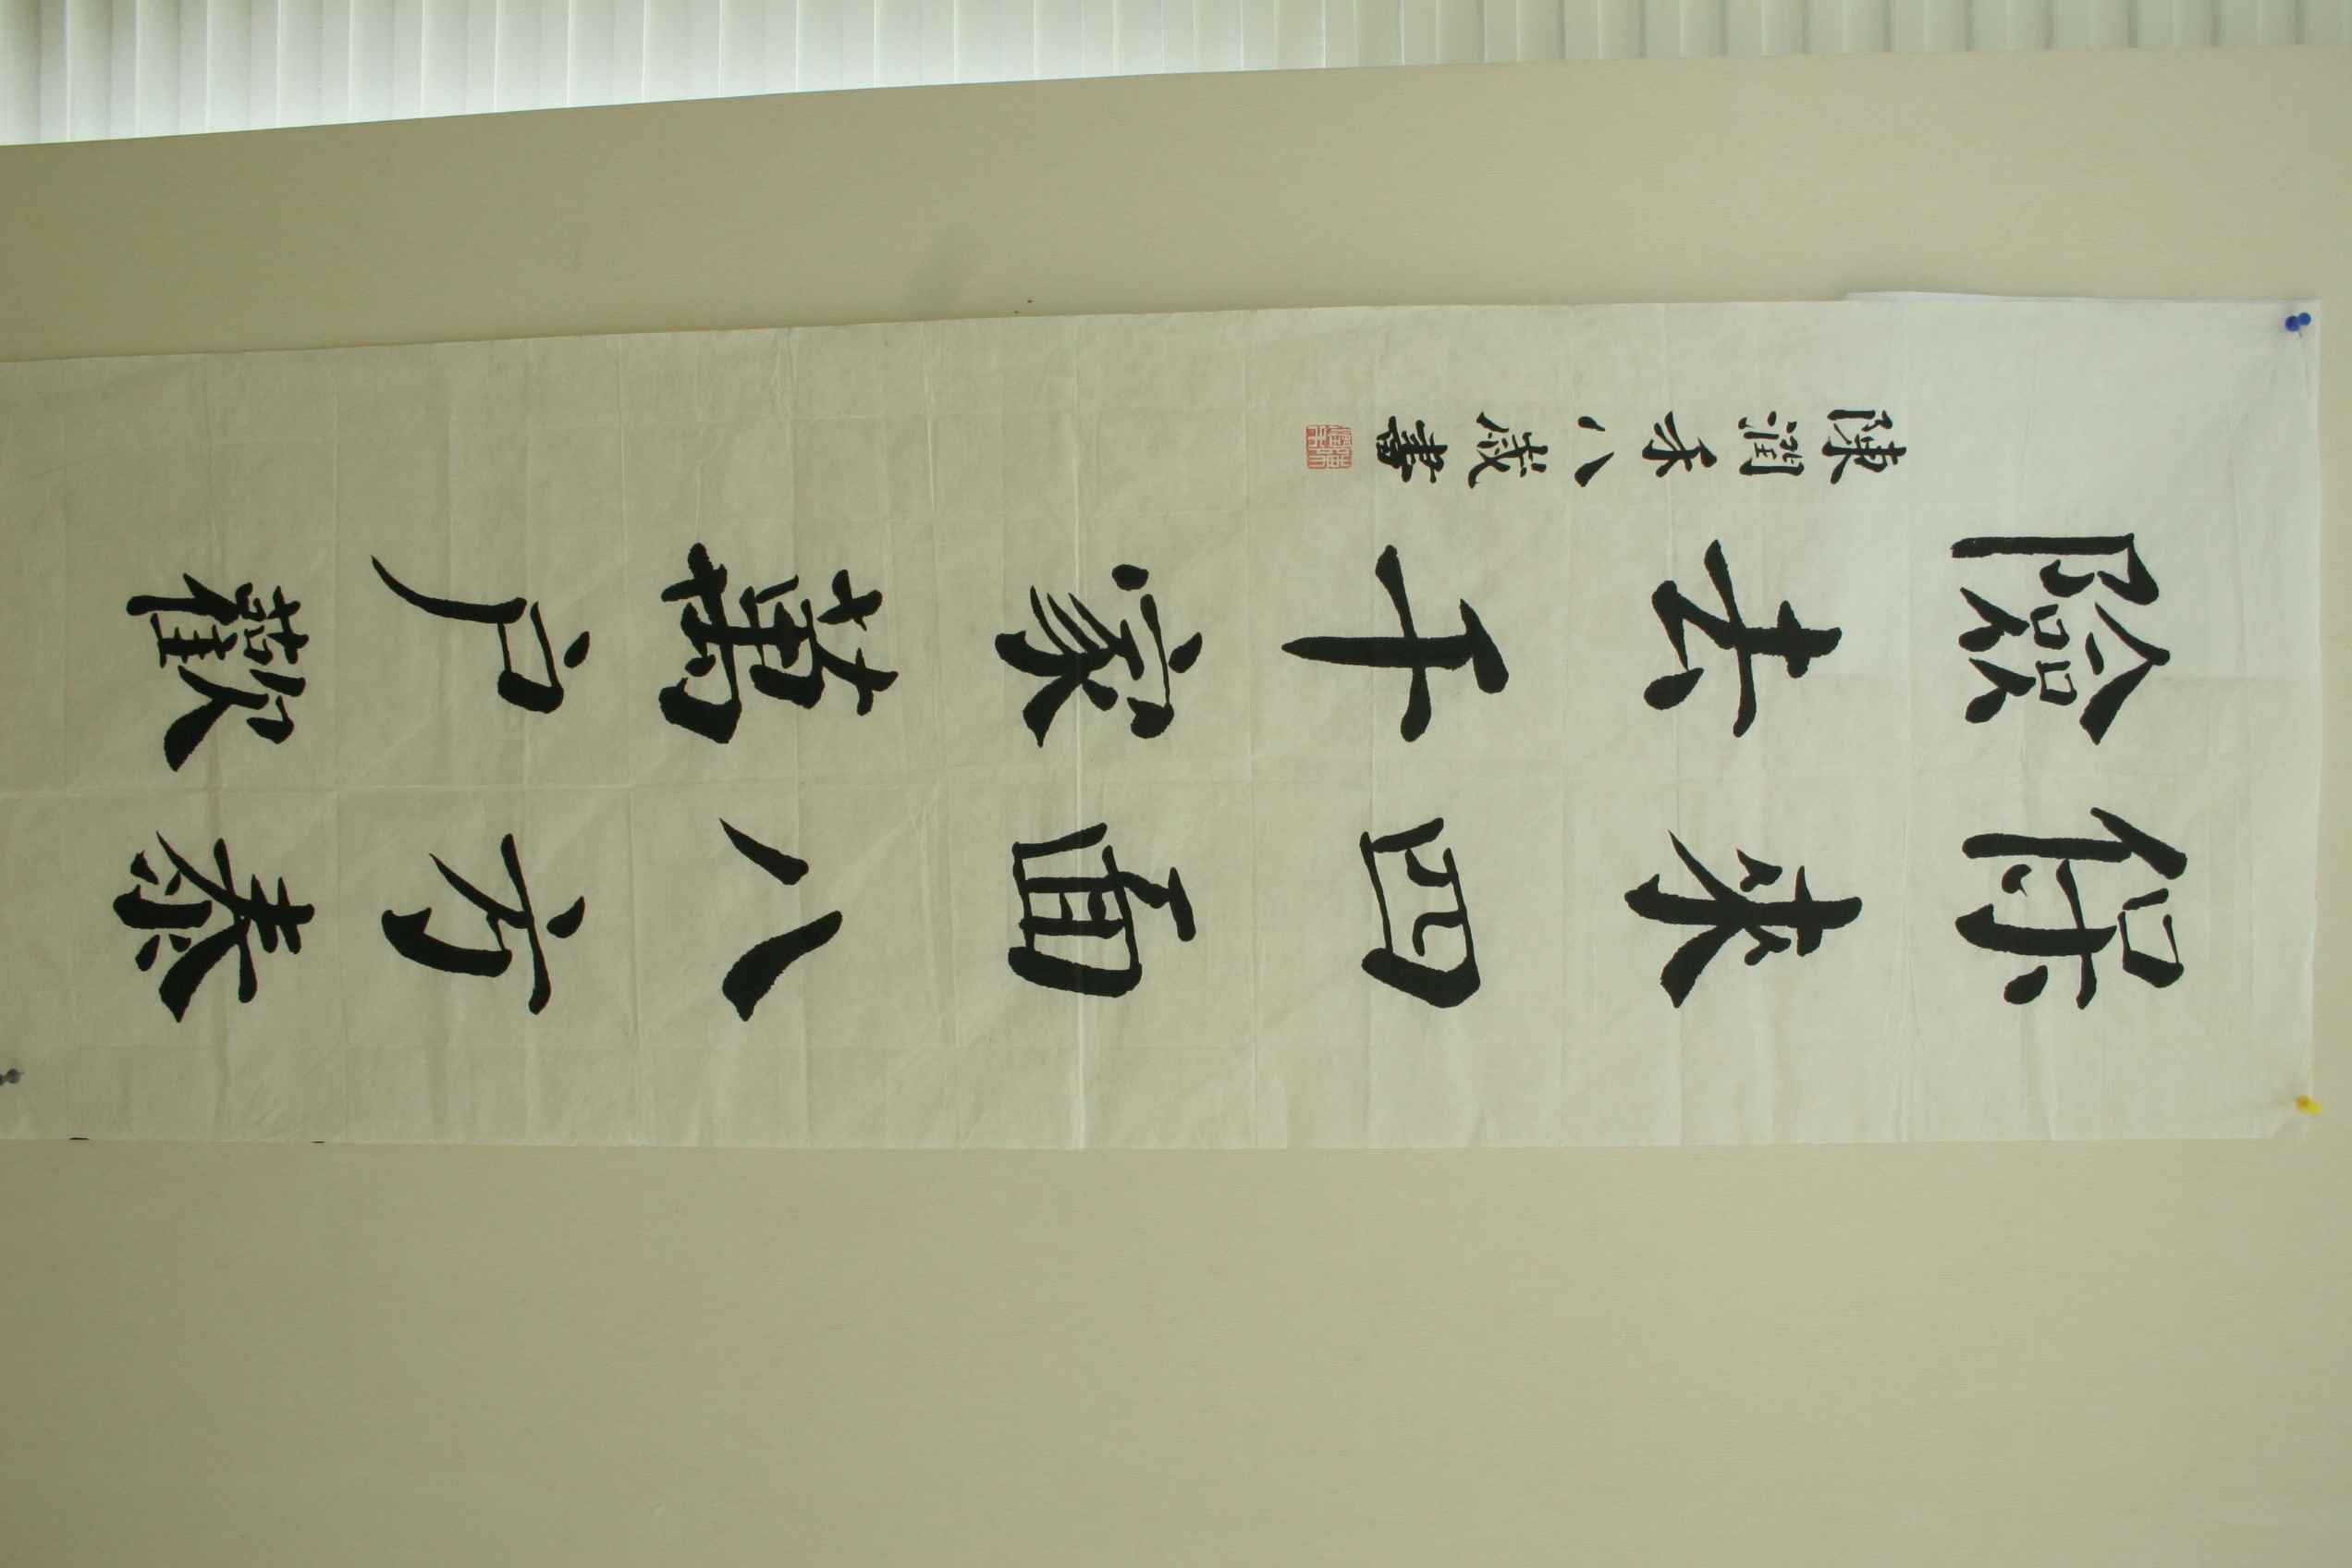 保來四面八方泰
險去千家萬户歡
陳潤禾八歲書